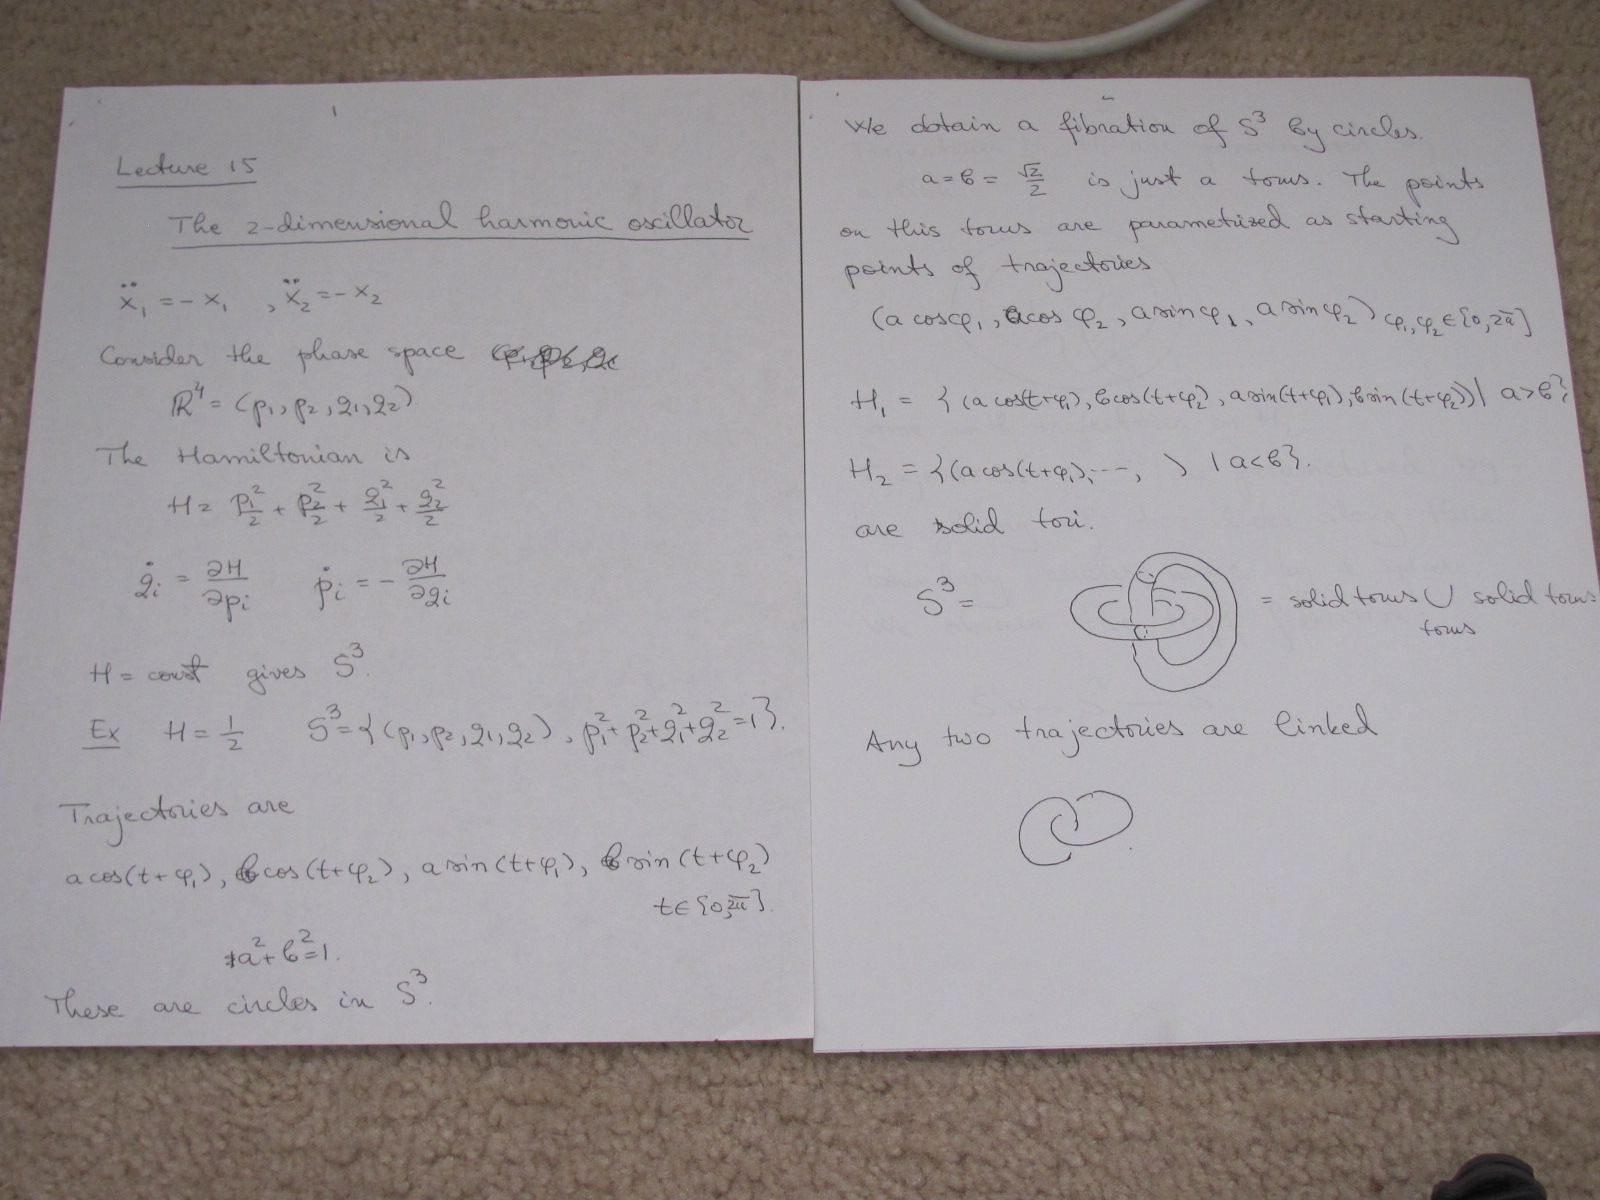 1
Lecture 15
The 2-dimensional harmonic oscillator
ẍ₁ = - x₁ , ẍ₂ = - x₂
Consider the phase space
ℝ⁴ = (p₁, p₂, q₁, q₂).
The Hamiltonian is
H = p₁²/2 + p₂²/2 + q₁²/2 + q₂²/2
q̇ᵢ = ∂H/∂pᵢ ṗᵢ = - ∂H/∂qᵢ
H = const gives S³.
Ex H = 1/2 S³ = {(p₁, p₂, q₁, q₂), p₁² + p₂² + q₁² + q₂² = 1}.
Trajectories are
a cos(t + φ₁), b cos(t + φ₂), a sin(t + φ₁), b sin(t + φ₂)
t ∈ [0, 2π].
a² + b² = 1.
These are circles in S³.
We obtain a fibration of S³ by circles.
a = b = √2/2 is just a torus. The points
on this torus are parametrized as starting
points of trajectories
(a cos φ₁, a cos φ₂, a sin φ₁, a sin φ₂) φ₁, φ₂ ∈ [0, 2π]
H₁ = {(a cos(t+φ₁), b cos(t+φ₂), a sin(t+φ₁), b sin(t+φ₂)) | a > b}
H₂ = {(a cos(t+φ₁), ---, ) | a < b}.
are solid tori.
S³ = = solid torus ∪ solid torus
torus
Any two trajectories are linked